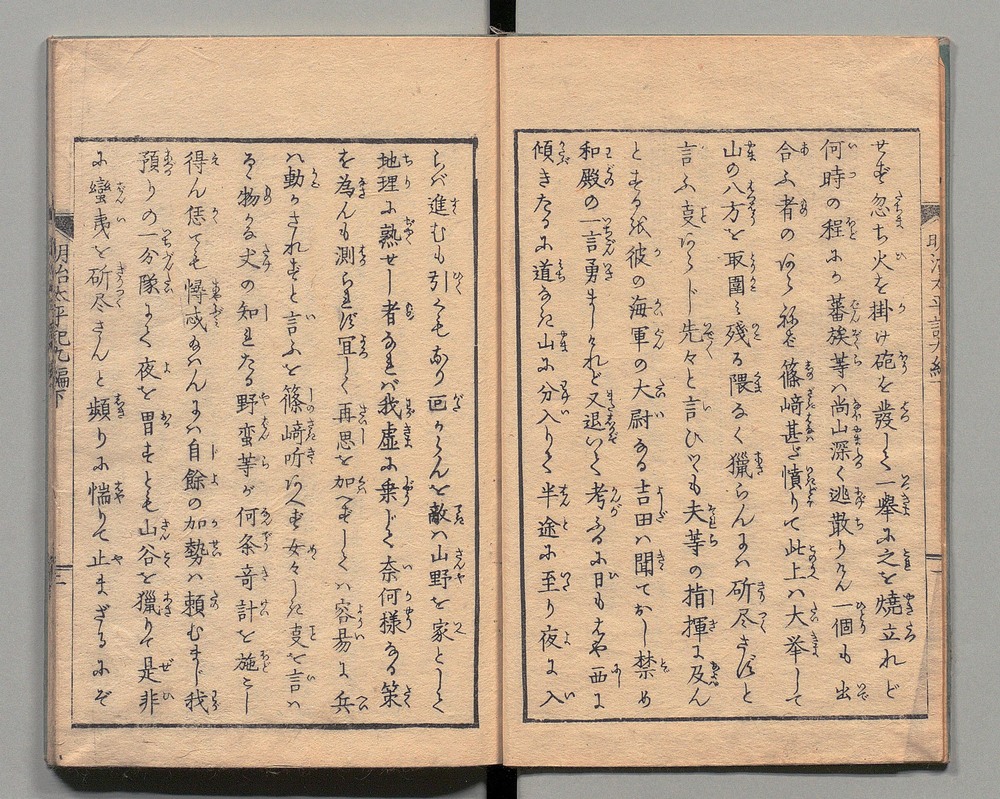 せず忽ち火を掛け砲を發して一擧に之を燒立れど
何時の程にか蕃族等ハ尚山深く逃散りけん一個も出
合ふ者のあらねば篠﨑甚だ憤りて此上ハ大挙して
山の八方を取圍ミ殘る隈なく獵らんにハ斫尽さずと
言ふ事あらじ先々と言ひつゝも夫等の指揮に及ん
とする𪜈彼の海軍の大尉なる吉田ハ聞てかし禁め
和殿の一言勇ましけれど又退いて考ふるに日もはや西に
傾きたるに道なき山に分入りて半途に至り夜に入
らバ進むも引くも難り回からんを敵ハ山野を家として
地理に熟せし者なれバ我虚に乗じて奈何様なる策
を為んも測られず冝しく再思を加へずしてハ容昜に兵
ハ動かされずと言ふを篠﨑听あへず女々しき事を言ハ
るゝ物かな丈の知れたる野蛮等が何条竒計を施こし
得ん恁ても憚惑あらんにハ自餘の加勢ハ頼むまじ我
預りの一分隊にて夜を冒すとも山谷を獵りて是非
に蠻夷を斫尽さんと頻りに惴りて止まざるにぞ
明治太平記九編下
二